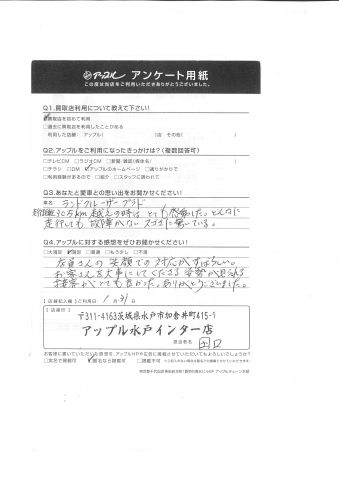 アップル アンケート用紙
この度は当店をご利用いただきありがとうございました。
Q1.買取店利用について教えて下さい!
買取店を初めて利用
□過去に買取店を利用したことがある
利用した店舗: アップル( )店 その他( )
Q2.アップルをご利用になったきっかけは?(複数回答可)
□テレビCM □ラジオCM □新聞・雑誌(媒体名: )
□チラシ □DM アップルのホームページ □通りがかりで
□利用経験があるので □紹介 □スタッフに誘われて
Q3.あなたと愛車との思い出をお聞かせください!
車名 ランドクルーザープラド
30万km越えの時は、とても感動した。どんなに
走行しても故障がないスゴさに驚いている。
Q4.アップルに対する感想をぜひお聞かせください!
□大満足 満足 □普通 □もう少し □不満
店員さんの笑顔での対応がすばらしい。
お客さんを大事にしてくださる姿勢が見られる
接客がとても良かった。ありがとうございました。
【店舗記入欄】ご利用日: 1月31日
【店舗印】
〒311-4163茨城県水戸市加倉井町415-1
アップル水戸インター店
担当者名 田口
お客様に書いていただいた感想を、アップルHPや広告に掲載させていただいてもよろしいでしょうか?
□実名で掲載可 匿名なら掲載可 □掲載不可